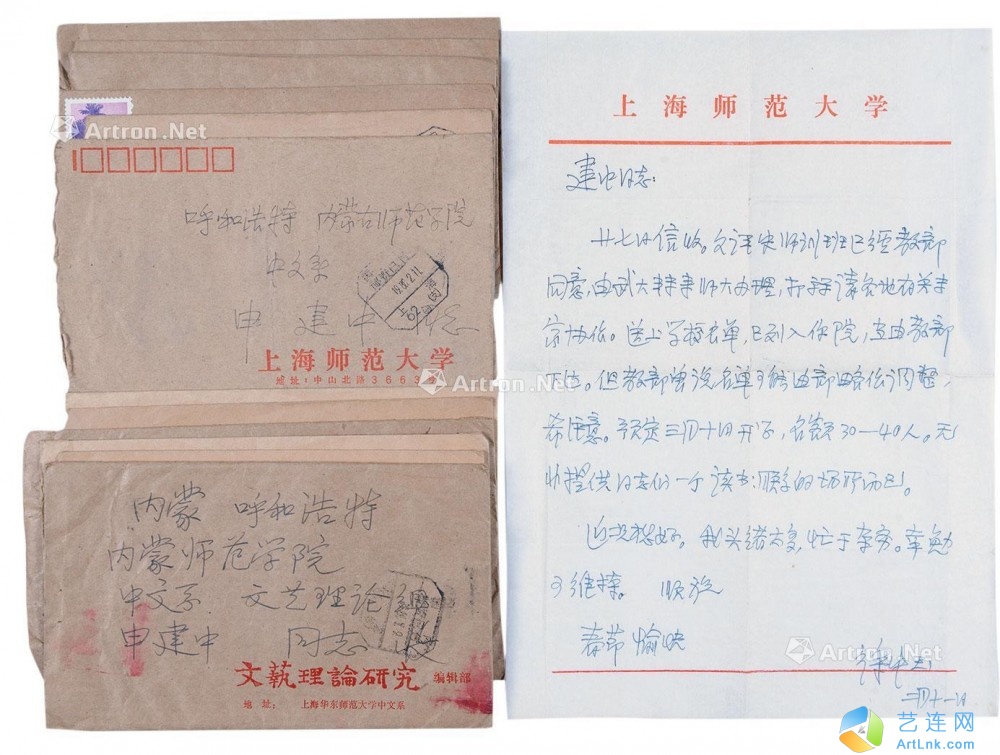 呼和浩特 内蒙古师范学院
中文系
申 建 中 同志
上海师范大学
地址:中山北路3663号
内蒙 呼和浩特
内蒙师范学院
中文系 文艺理论组
申建中 同志 收
文藝理論研究 编辑部
地 址: 上海华东师范大学中文系
上海师范大学
建中同志:
廿七日信收。文评 师训班已经教部
同意,由武大 师大办理,
协作。送上学校名单,已列入你院,直由教部
下达。但教部曾说名单可能由部略作调整,
希注意。预定三月十日开学,名额30—40人。无
提供同志们一个读书 的场所而已。
近况想好。我头绪 ,忙于杂务。
可维持。 顺祝
春节愉快
二月十一日
Artron.Net
Artron.Net
Artron.Net
艺连网
ArtLnk.com